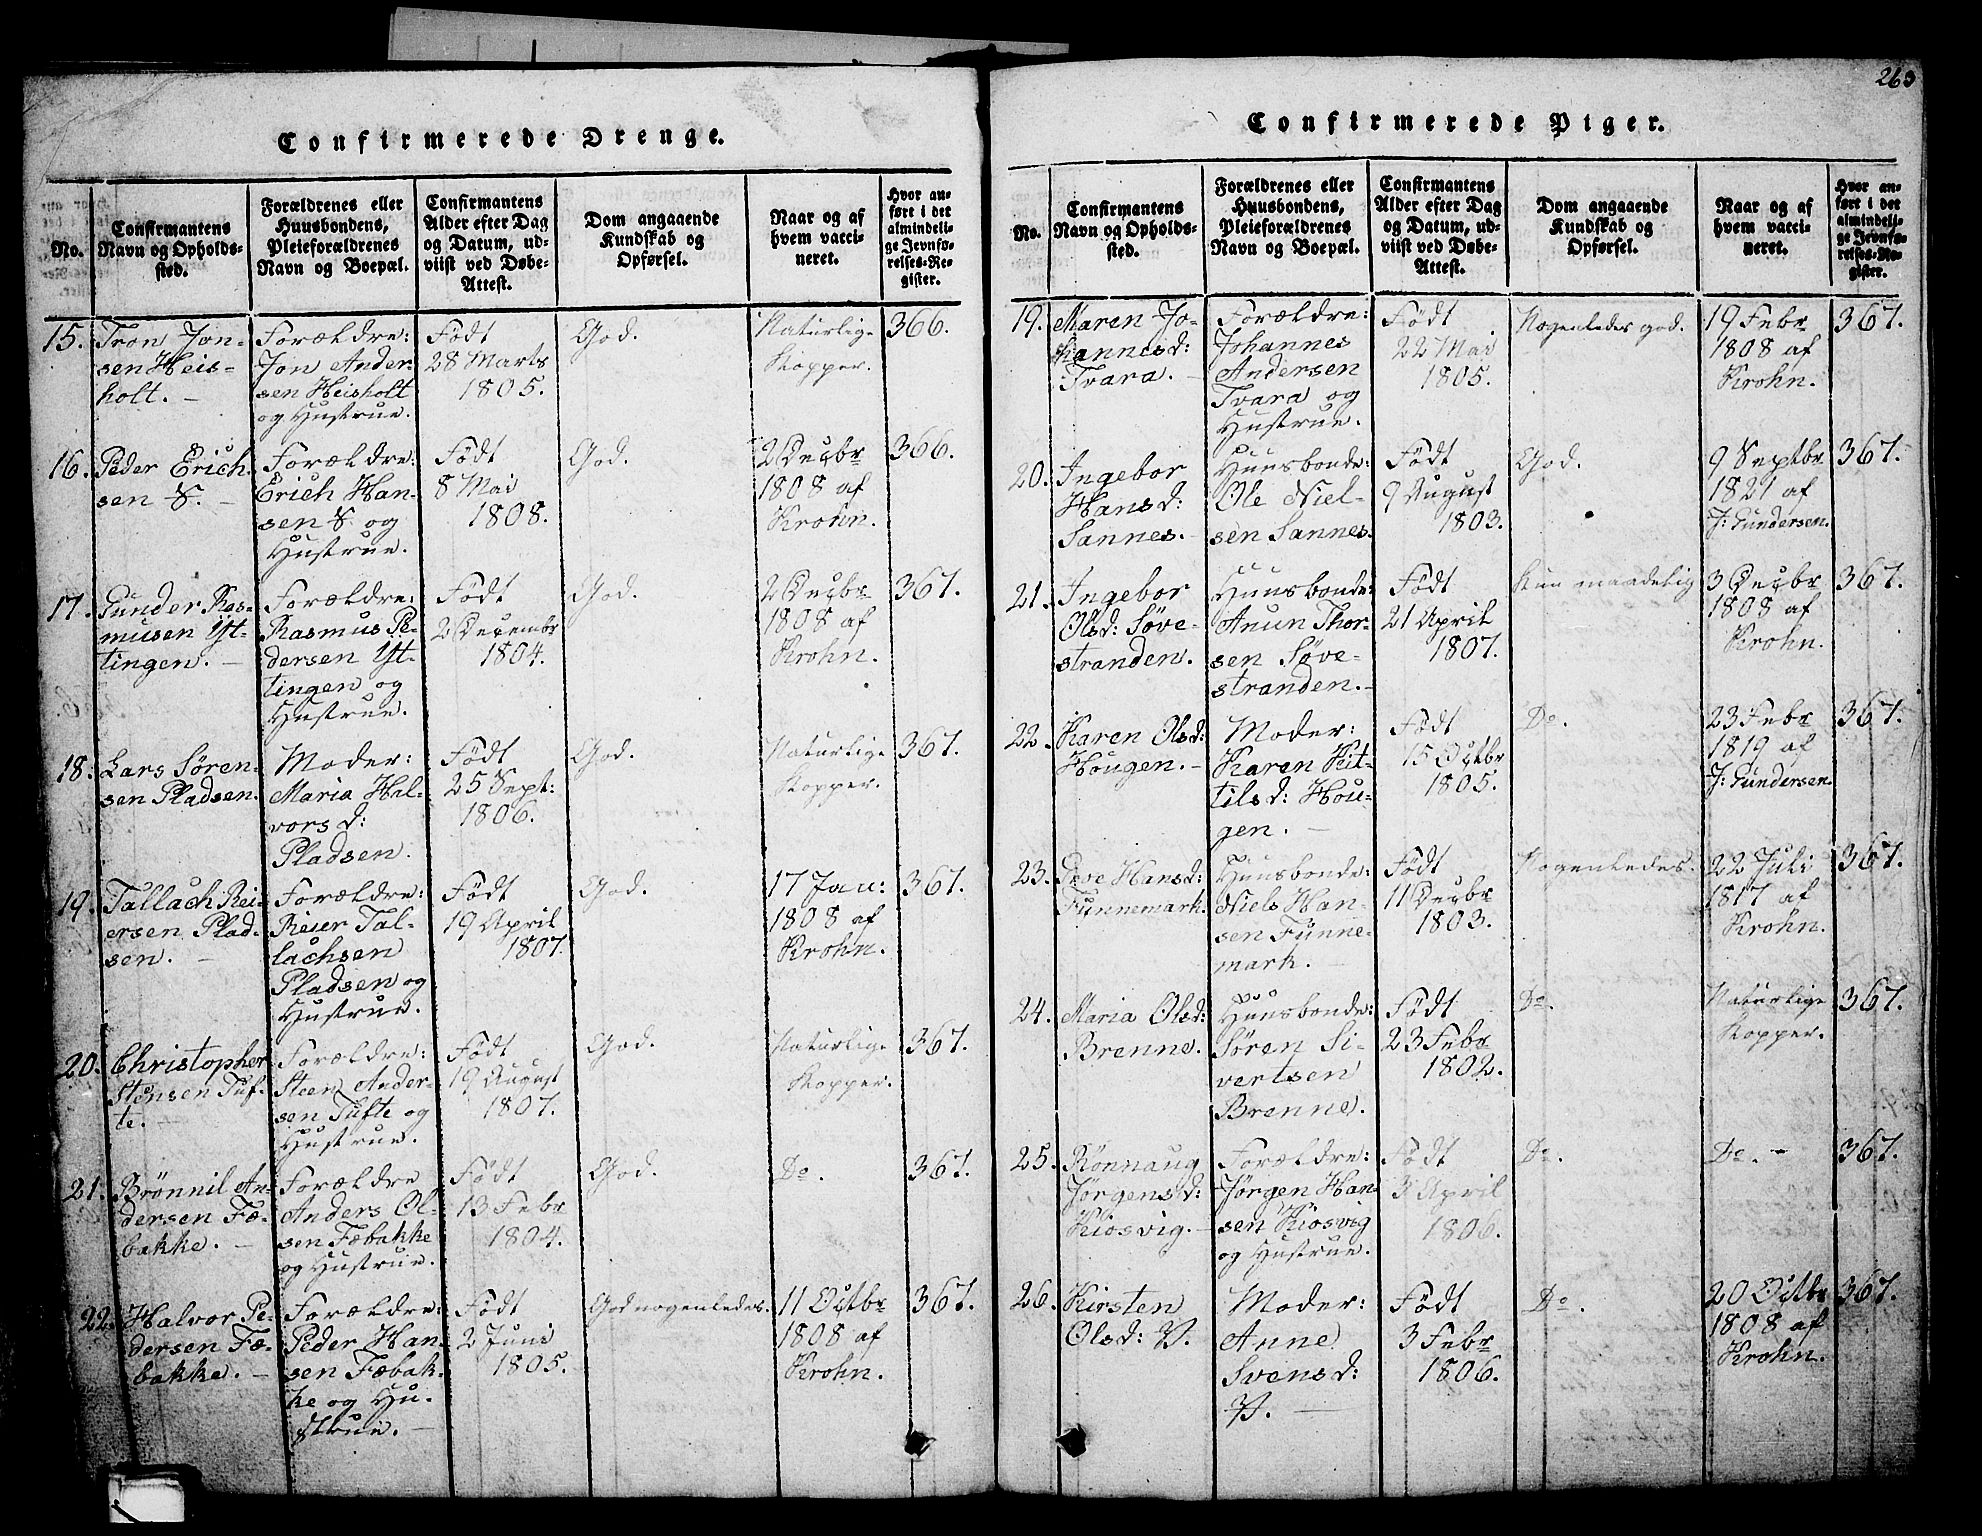 263
Confirmerede Drenge.
No.
Confirmantens
Navn og Opholds-
sted.
Forældrenes eller
Huusbondens,
Pleieforældrenes
Navn og Boepæl.
Confirmantens
Alder efter Dag
og Datum, ud-
viist ved Døbe-
Attest.
Dom angaaende
Kundskab og
Opførsel.
Naar og af
hvem vacci-
neret.
Hvor an-
ført i det
almindeli-
ge Jevnfø-
relses-Re-
gister.
15.
Tron Jon-
sen Heis-
holt. –
Forældre:
Jon Ander-
sen Heisholt
og Hustrue.
Født
28 Marts
1805.
God.
Naturlige
Kopper.
366.
16.
Peder Erich-
sen S. –
Forældre:
Erich Han-
sen S. og
Hustrue.
Født
8 Mai
1808.
God.
2 Decbr
1808 af
Krohn.
366.
17.
Gunder Ras-
musen Yt-
tingen. –
Forældre:
Rasmus Pe-
dersen Yt-
tingen og
Hustrue.
Født
2 Decembr
1804.
God.
2 Decbr
1808 af
Krohn.
367.
18.
Lars Søren-
sen Pladsen.
Moder:
Maria Hal-
vorsd:
Pladsen.
Født
25 Sept:
1806.
God.
Naturlige
Kopper.
367.
19.
Tallach Rei-
ersen Plad-
sen. –
Forældre:
Reier Tal-
lachsen
Pladsen og
Hustrue.
Født
19 April
1807.
God.
17 Jan:
1808 af
Krohn.
367.
20.
Christopher
Stensen Tuf-
te. –
Forældre:
Steen Ander-
sen Tufte og
Hustrue.
Født
19 August
1807.
God.
Naturlige
Kopper.
367.
21.
Brønnil An-
dersen Fæ-
bakke. –
Forældre
Anders Ol-
sen Fæbakke
og Hustrue.
Født
13 Febr
1804.
God.
Do.
367.
22.
Halvor Pe-
dersen Fæ-
bakke. –
Forældre:
Peder Han-
sen Fæbak-
ke og Hu-
strue. –
Født
2 Juni
1805.
God nogenledes.
11 Octbr
1808 af
Krohn.
367.
Confirmerede Piger.
No.
Confirmantens
Navn og Opholds-
sted.
Forældrenes eller
Huusbondens,
Pleieforældrenes
Navn og Boepæl.
Confirmantens
Alder efter Dag
og Datum, ud-
viist ved Døbe-
Attest.
Dom angaaende
Kundskab og
Opførsel.
Naar og af
hvem vacci-
neret.
Hvor an-
ført i det
almindeli-
ge Jevnfø-
relses-Re-
gister.
19.
Maren Jo-
hannesd:
Tvara. –
Forældre:
Johannes
Andersen
Tvara og
Hustrue.
Født
22 Mai
1805.
Nogenledes god.
19 Febr
1808 af
Krohn.
367.
20.
Ingebor
Hansd:
Sannes. –
Huusbonde:
Ole Niel-
sen Sannes.
Født
9 August
1803.
God.
9 Septbr
1821 af
J: Gundersen.
367.
21.
Ingebor
Olsd: Søve-
stranden.
Huusbonde:
Anun Thor-
sen Søve-
stranden. –
Født
21 April
1807.
Kun maadelig
3 Decbr
1808 af
Krohn.
367.
22.
Karen Olsd:
Hougen. –
Moder:
Karen Kit-
tilsd: Hou-
gen. –
Født
15 Octbr
1805.
Do.
23 Febr
1819 af
J: Gundersen.
367.
23.
Hansd:
Funnemark.
Huusbonde:
Niels Han-
sen Funne-
mark. –
Født
11 Decbr
1803.
Nogenledes.
22 Juli
1817 af
Krohn.
367.
24.
Maria Olsd:
Brenne.
Huusbonde:
Søren Si-
vertsen
Brenne.
Født
23 Febr
1802.
Do.
Naturlige
Kopper.
367.
25.
Rønnaug
Jørgensd:
Kiosvig. –
Forældre:
Jørgen Han-
sen Kiosvig
og Hustrue.
Født
3 April
1806.
Do.
Do. –
367.
26.
Kirsten
Olsd: V.
Moder:
Anne
Svensd:
V. –
Født
3 Febr
1806.
Do.
20 Octbr
1808 af
Krohn.
367.